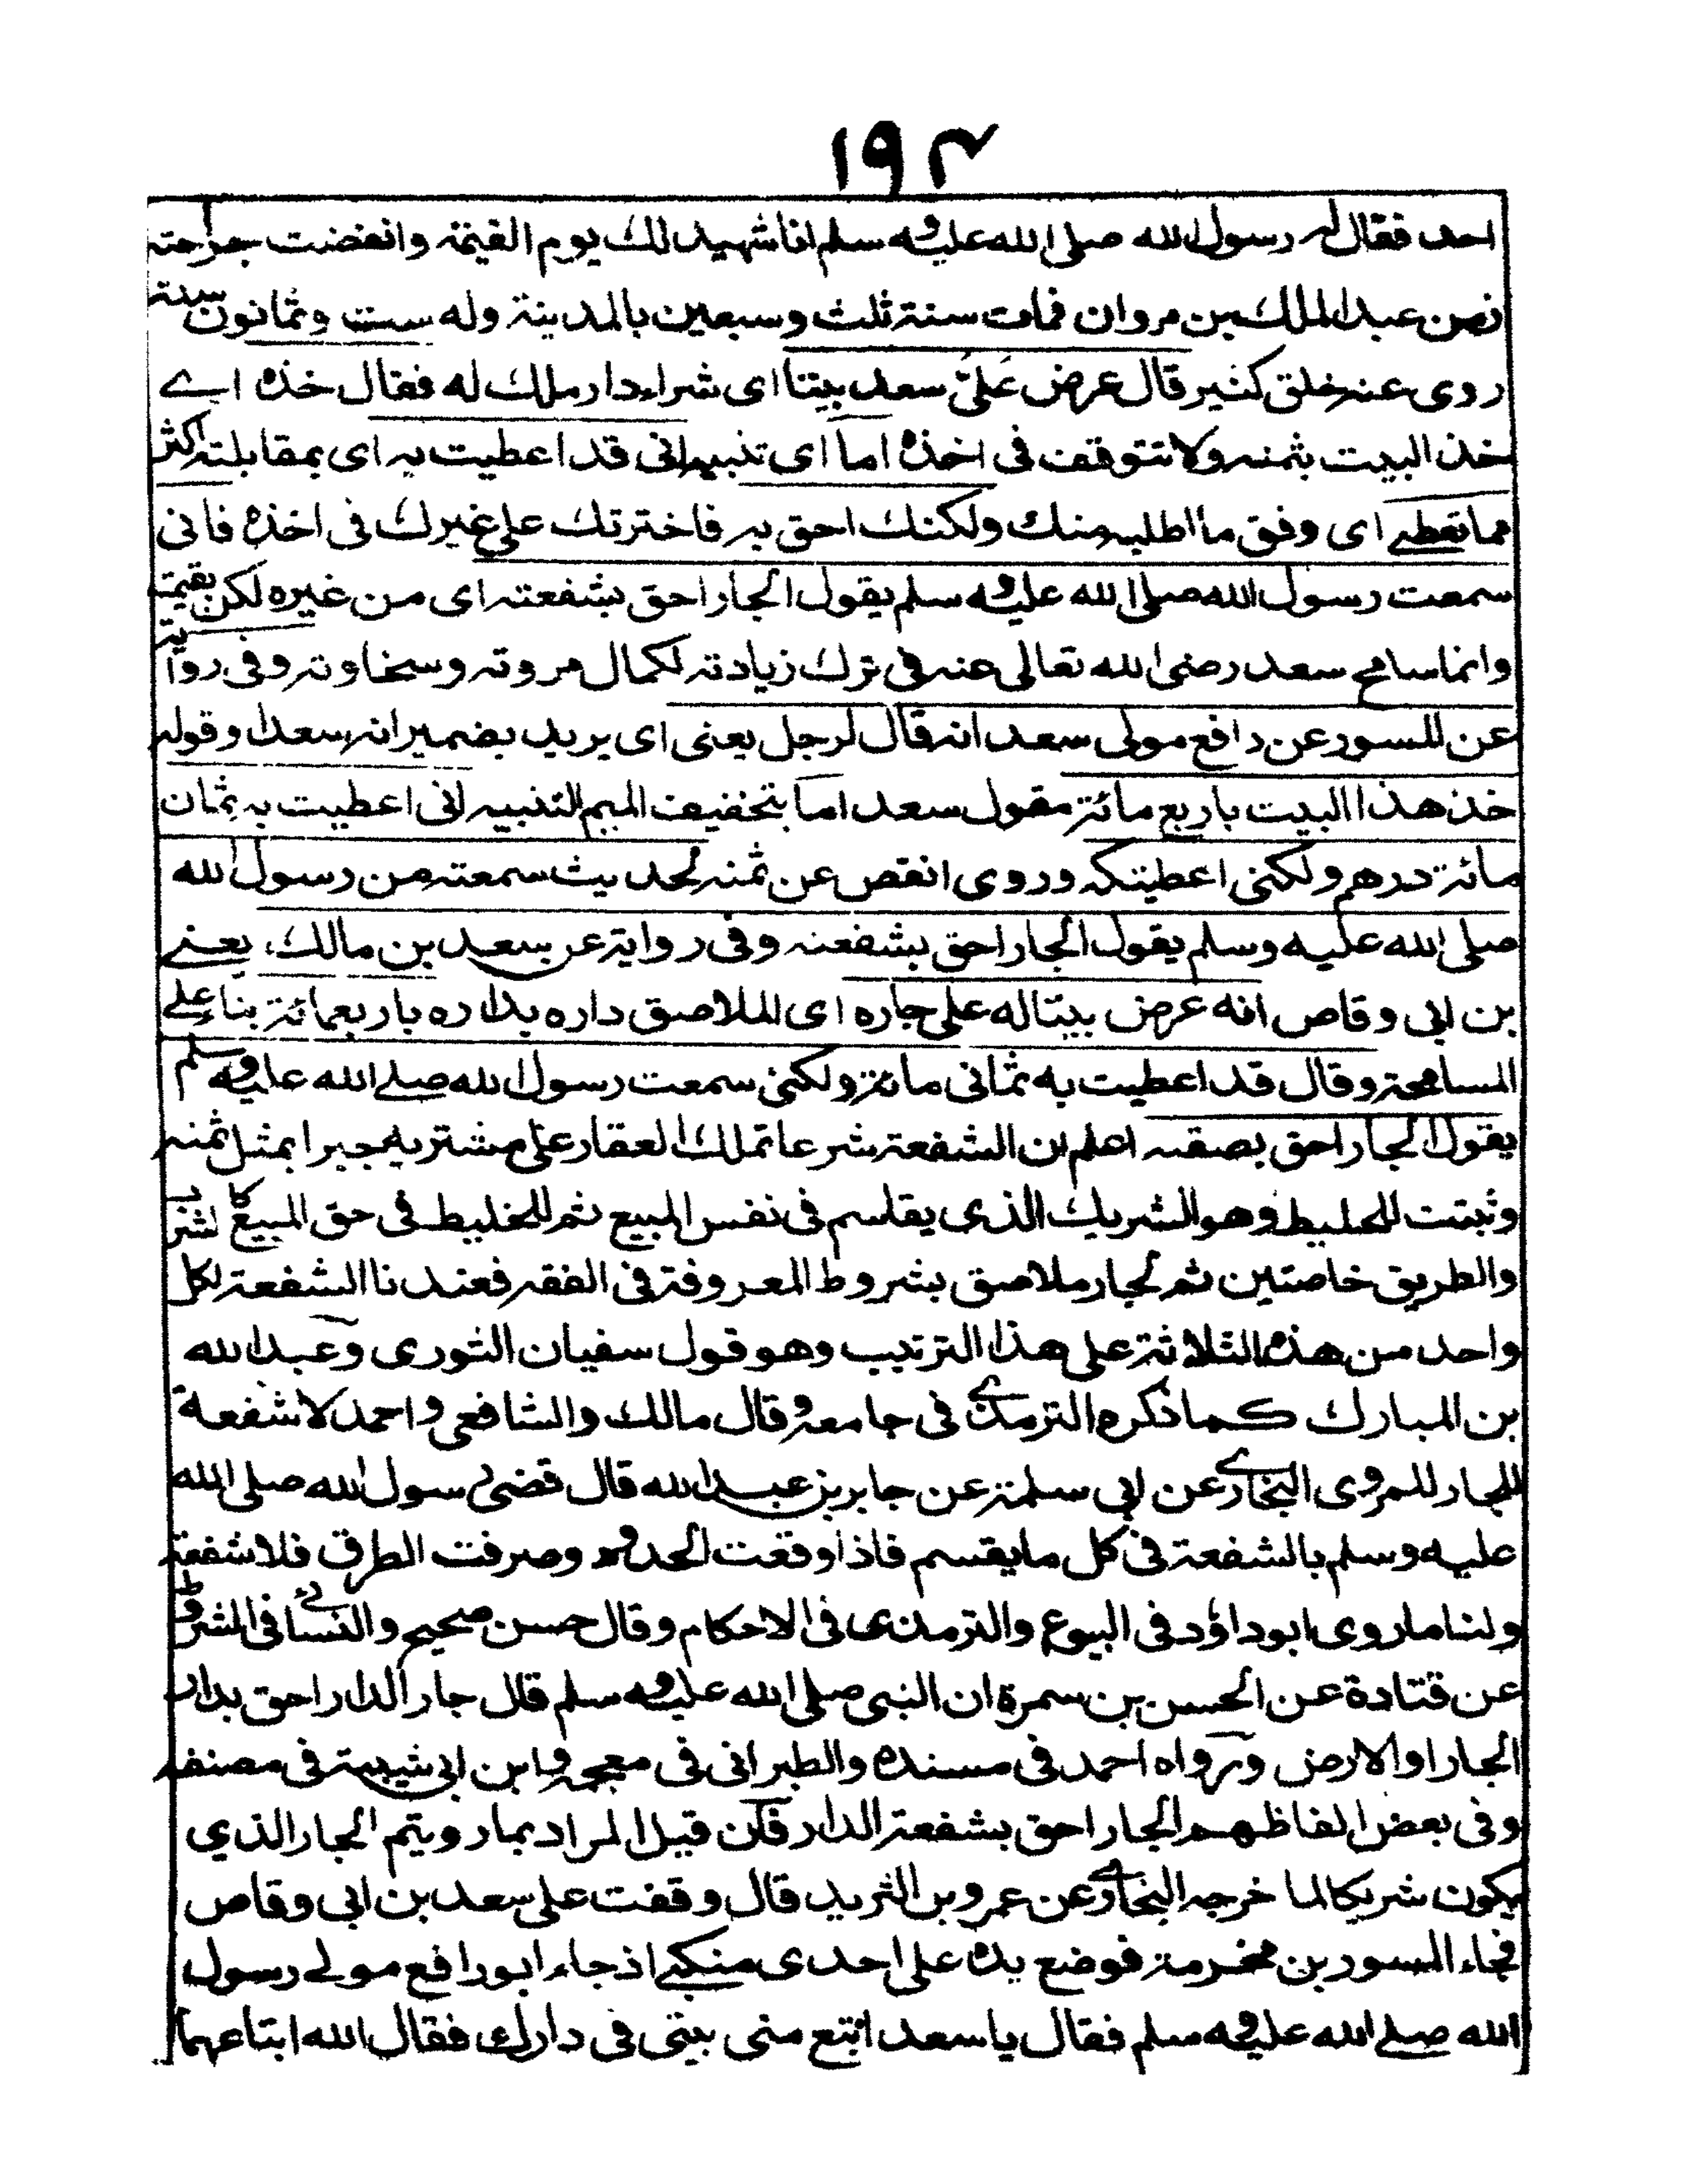 ١٩٣
احد فقال له رسول الله صلى الله عليه وسلم انا شهيد لك يوم القيمة وانقضت جراحته
زمن عبد الملك بن مروان فمات سنة ثلث وسبعين بالمدينة وله ست وثمانون سنة
روى عنه خلق كثير قال عرض عَلَيّ سعد بيتا اى شراء دار ملك له فقال خذه اے
خذ البيت بثمنه ولا تتوقف فى اخذه اما اى تنبيه انى قد اعطيت به اى بمقابلته اكثر
مما تعطے اى وفق ما اطلبه منك ولكنك احق به فاخترتك على غيرك فى اخذه فانى
سمعت رسول الله صلى الله عليه وسلم يقول الجار احق بشفعته اى من غيره لكن بقيمته
وانما سامح سعد رضى الله تعالى عنه فى ترك زيادته لكمال مروته وسخاوته وفى رواية
عن المسور عن رافع مولى سعد انه قال لرجل يعنى اى يريد بضمير انه سعدا وقوله
خذ هذا البيت باربع مائة مقول سعد اما بتخفيف الميم للتنبيه انى اعطيت به ثمان
مائة درهم ولكنى اعطيتكه وروى انقص عن ثمنه لحديث سمعته من رسول الله
صلى الله عليه وسلم يقول الجار احق بشفعته وفى رواية عن سعد بن مالك يعنے
بن ابى وقاص انه عرض بيتا له على جاره اى الملاصق داره بداره باربعمائة بناء علے
المسامحة وقال قد اعطيت به ثمانى مائة ولكنى سمعت رسول الله صلے الله عليه وسلم
يقول الجار احق بصقبه اعلم ان الشفعة شرعا تملك العقار على مشتريه جبرا بمثل ثمنه
وثبتت للخليط وهو الشريك الذى يقاسم فى نفس المبيع ثم للخليط فى حق المبيع كالشرب
والطريق خاصتين ثم لجار ملاصق بشروط المعروفة فى الفقه فعندنا الشفعة لكل
واحد من هذه الثلاثة على هذا الترتيب وهو قول سفيان الثورى وعبد الله
بن المبارك كما ذكره الترمذے فى جامعه وقال مالك والشافعى واحمد لا شفعة
للجار لما روى البخارے عن ابى سلمة عن جابر بن عبد الله قال قضى رسول الله صلى الله
عليه وسلم بالشفعة فى كل ما يقسم فاذا وقعت الحدود وصرفت الطرق فلا شفعة
ولنا ما روى ابو داؤد فى البيوع والترمذى فى الاحكام وقال حسن صحيح والنسائے فى الشروط
عن قتادة عن الحسن بن سمرة ان النبى صلى الله عليه وسلم قال جار الدار احق بدار
الجار او الارض ورواه احمد فى مسنده والطبرانى فى معجمه وابن ابى شيبة فى مصنفه
وفى بعض الفاظهم الجار احق بشفعة الدار فان قيل المراد بما رويتم الجار الذي
يكون شريكا لما خرجه البخارے عن عمرو بن الثريد قال وقفت على سعد بن ابى وقاص
فجاء المسور بن مخرمة فوضع يده على احدى منكبے اذ جاء ابو رافع مولے رسول
الله صلے الله عليه وسلم فقال يا سعد ابتع منى بيتى فى دارك فقال الله ابتاعهما